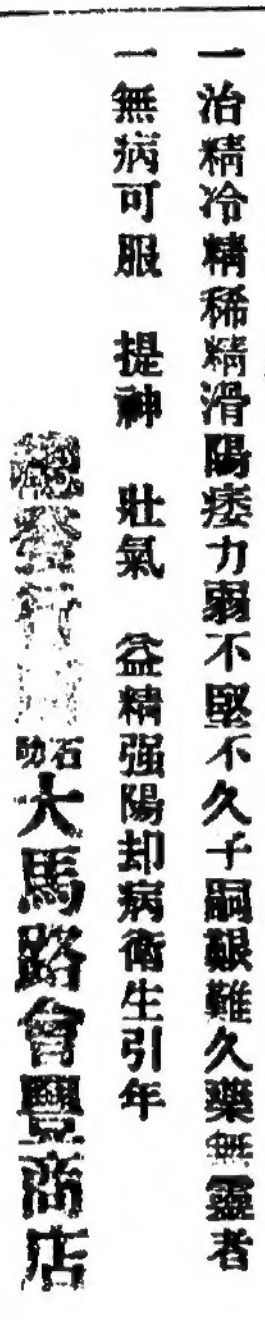 一治精冷精稀精滑陽痿力弱不堅不久子嗣艱難久藥無靈者
一無病可服　提神　壯氣　益精强陽却病衛生引年
總發行所石叻大馬路會豐商店